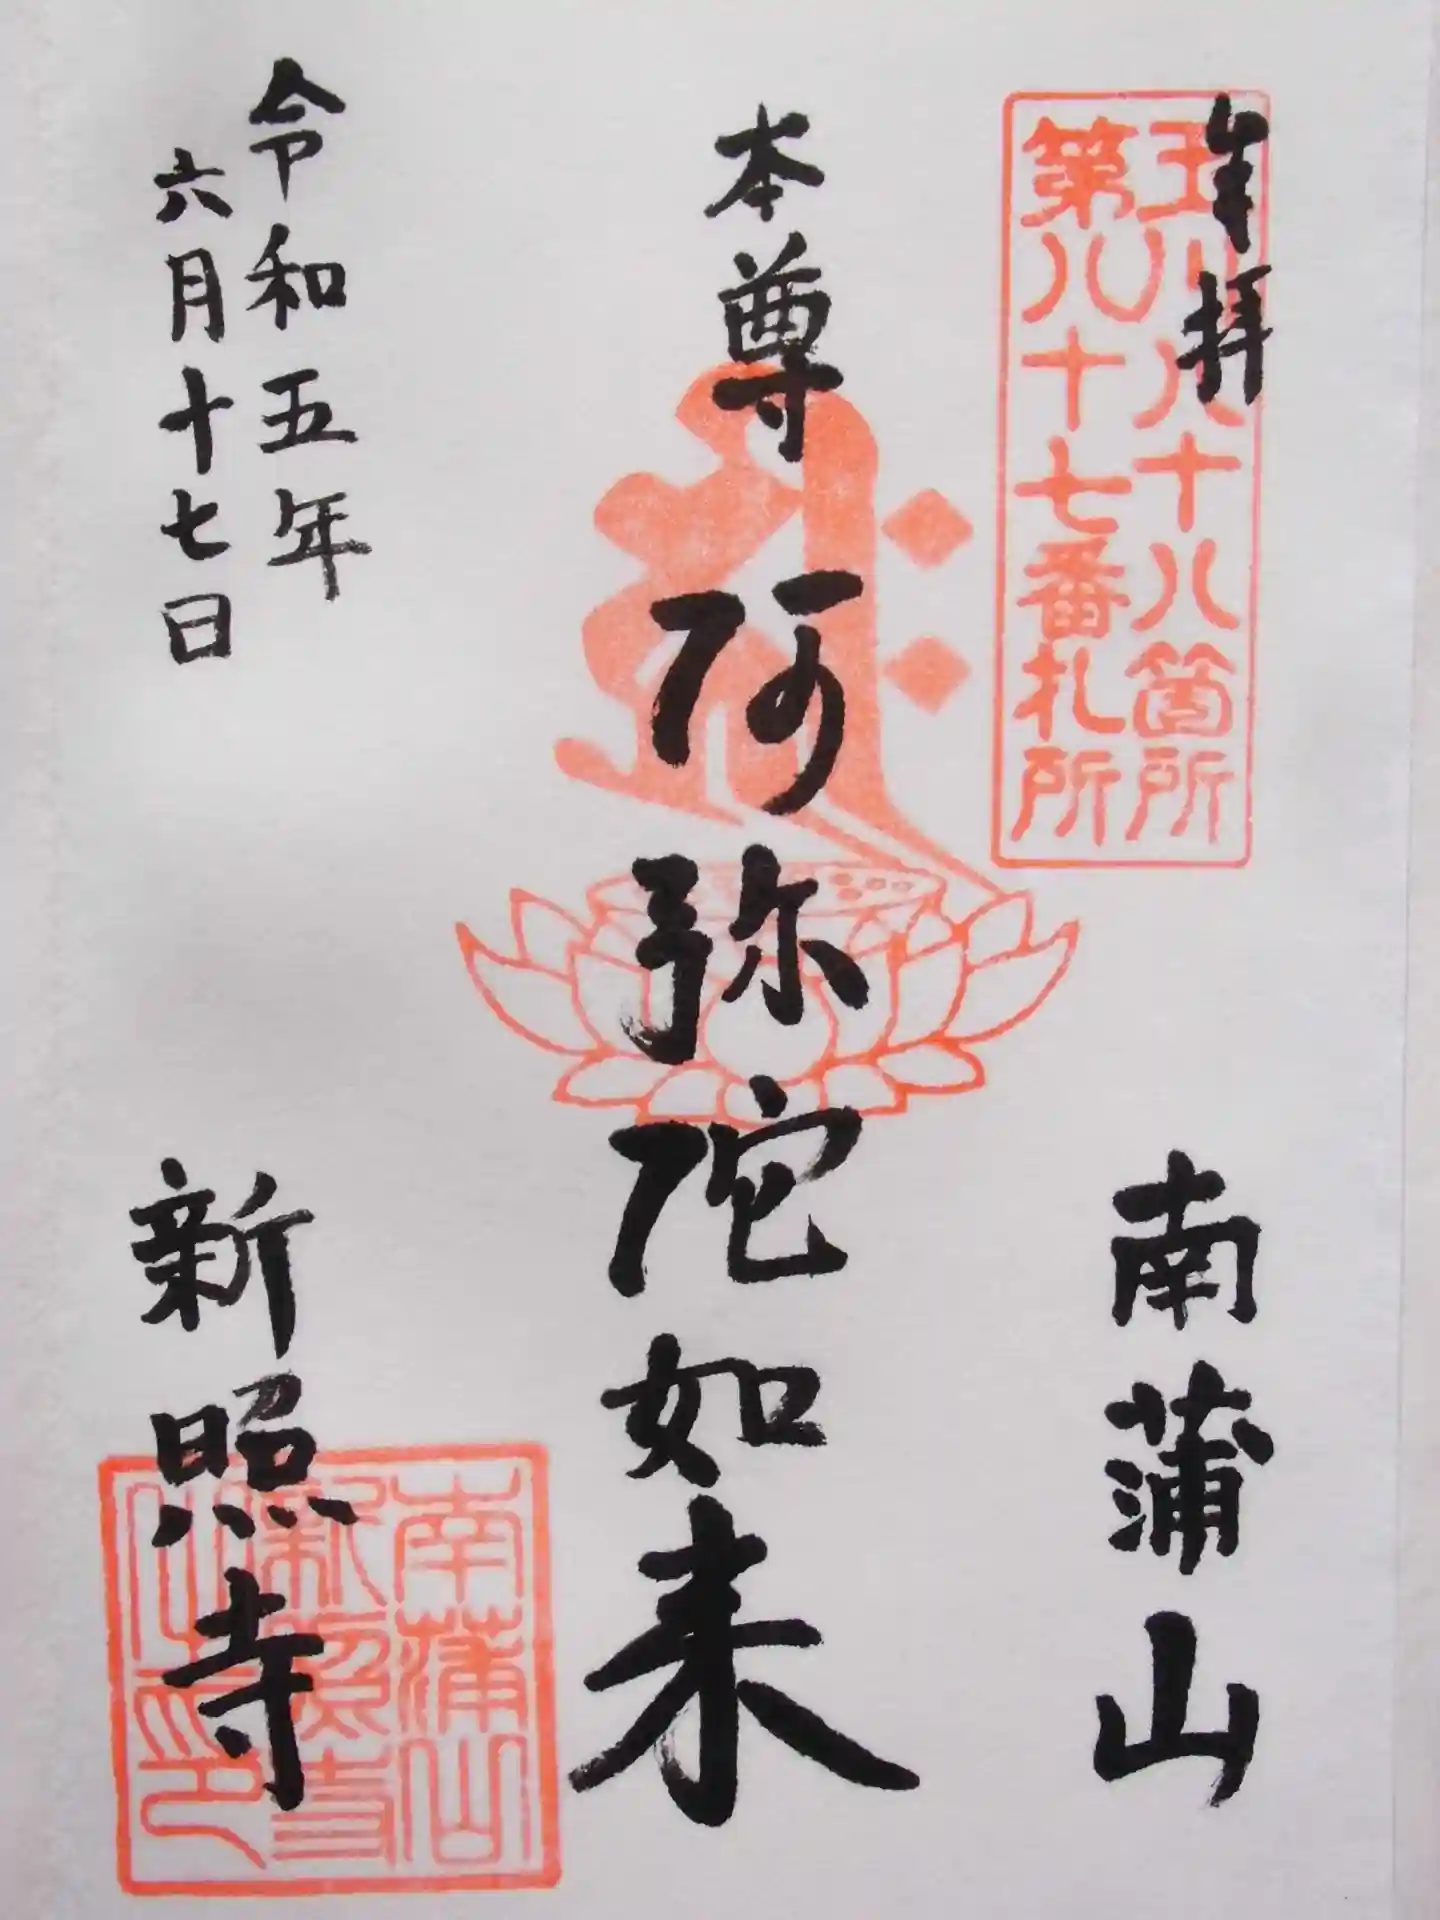 奉拝
玉川八十八箇所
第八十七番札所
南蒲山
本尊
阿弥陀如来
令和五年
六月十七日
新照寺
南蒲山
新照寺
之印